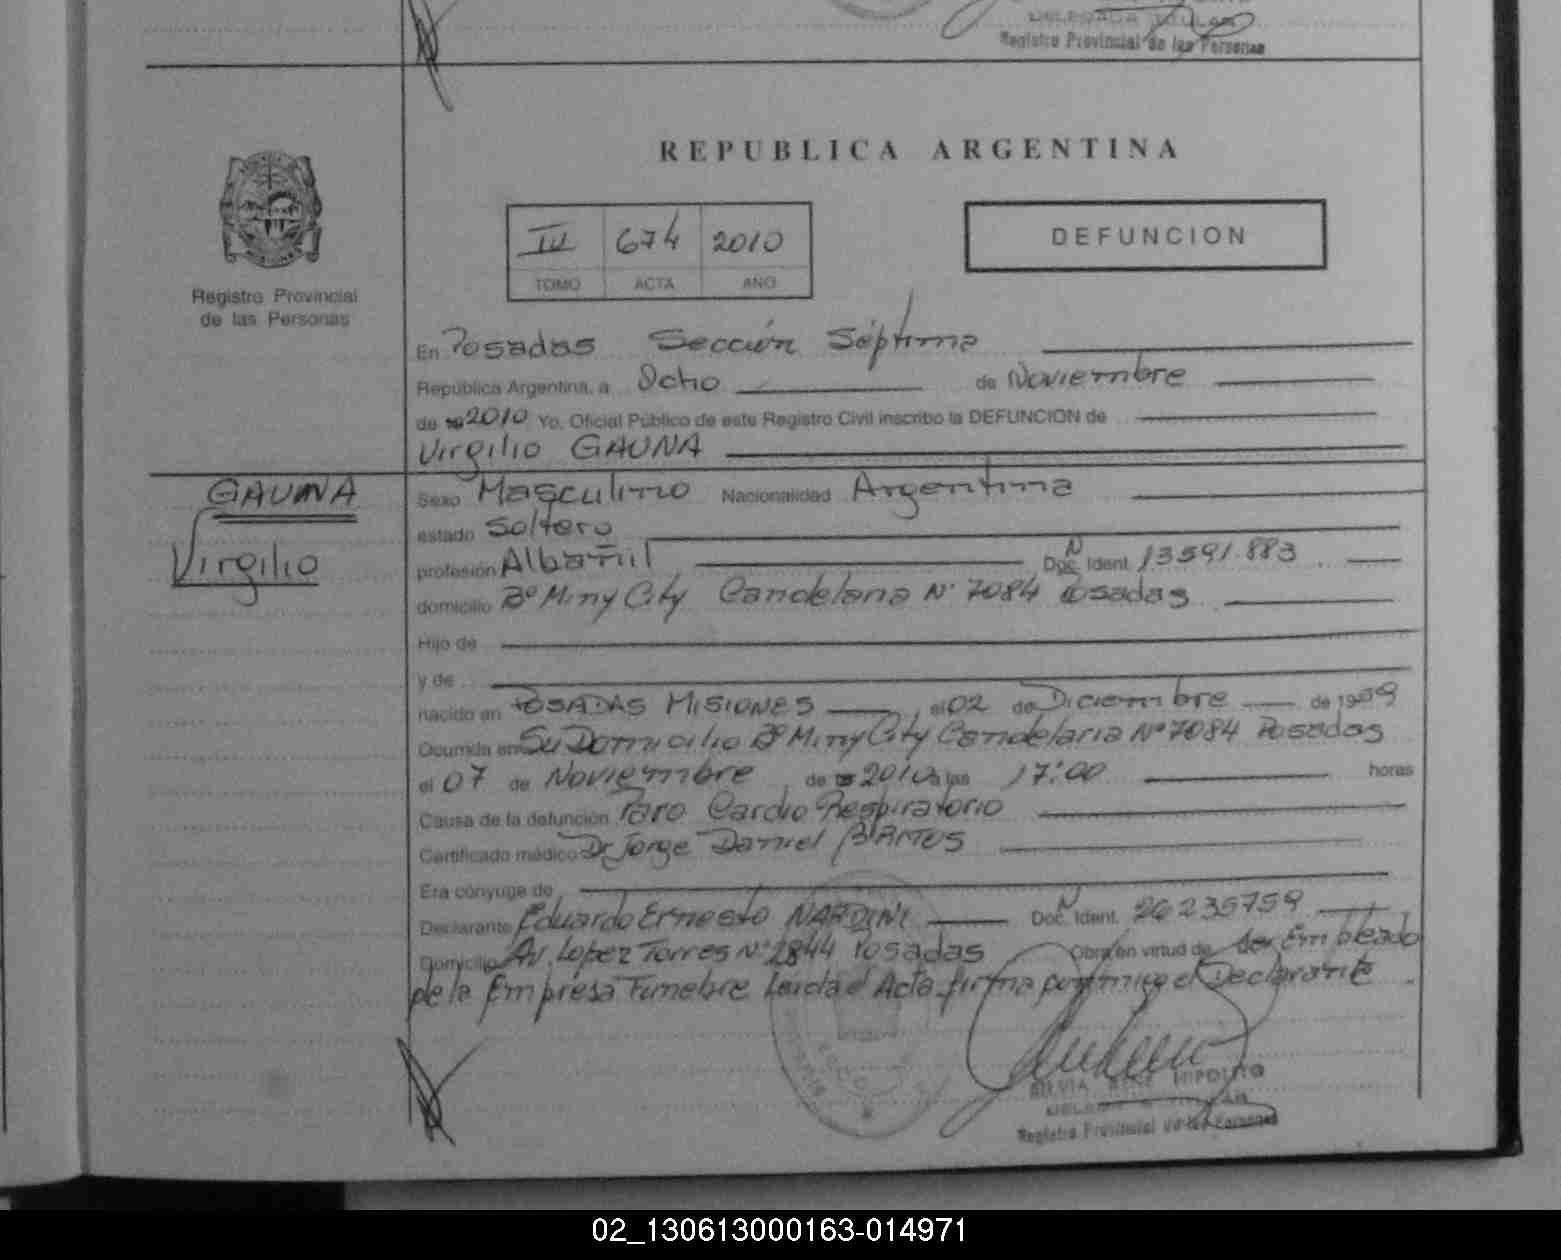 Registro Provincial de las Personas
REPUBLICA ARGENTINA
III 674 2010
TOMO ACTA AÑO
DEFUNCION
Registro Provincial
de las Personas
En Posadas Sección Séptima
República Argentina, a Ocho de Noviembre
de 2010 Yo, Oficial Público de este Registro Civil inscribo la DEFUNCION de
Virgilio GAUNA
GAUNA
Virgilio
Sexo Masculino Nacionalidad Argentina
estado Soltero
profesión Albañil Doc. Ident. N 13591.883
domicilio Bº Miny City Candelaria Nº 7084 Posadas
Hijo de
y de
nacido en POSADAS MISIONES el 02 de Diciembre de 1959
Ocurrida en Su Domicilio Bº Miny City Candelaria Nº 7084 Posadas
el 07 de Noviembre de 2010 a las 17:00 horas
Causa de la defunción Paro Cardio Respiratorio
Certificado médico Dr Jorge Daniel
Era cónyuge de
Declarante Eduardo Ernesto NARDINI Doc. Ident. N 26235759
Domicilio Av. Lopez Torres Nº 2844 Posadas Obra en virtud de ser Empleado
de la Empresa Funebre Leida el Acta firma conmigo el Declarante
SILVIA HIPOLITO
Registro Provincial de las Personas
02_130613000163-014971